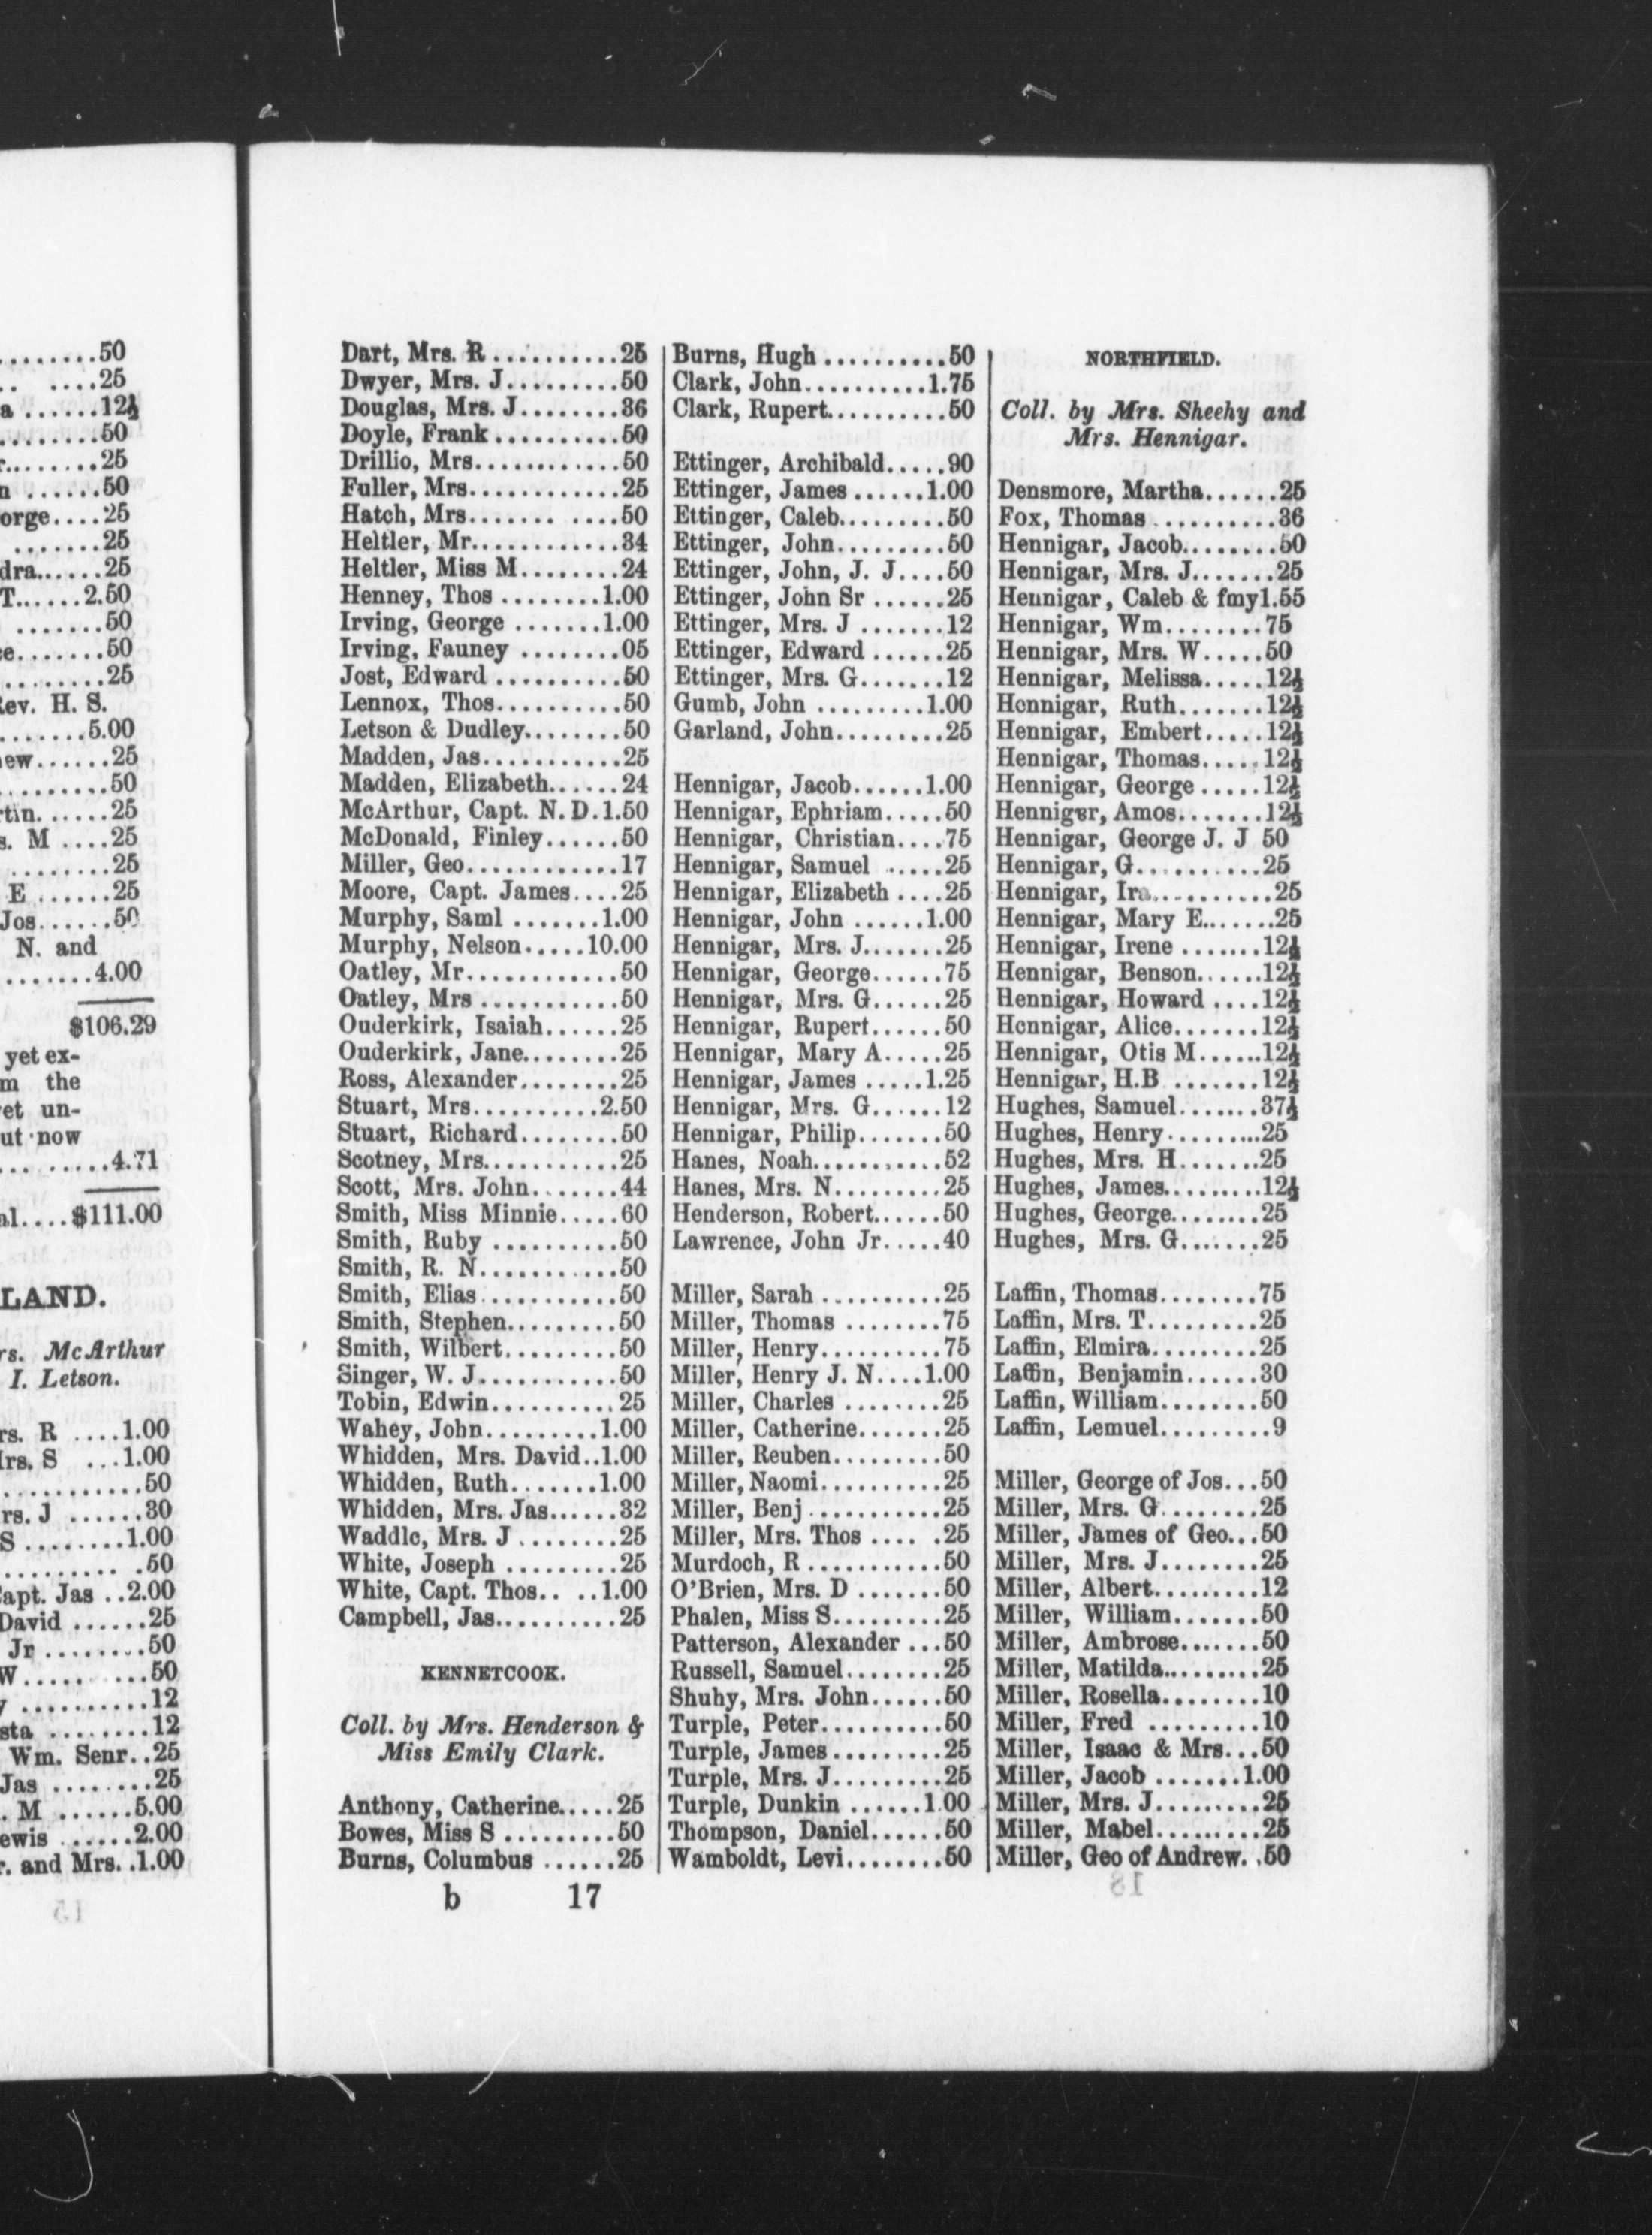 ........50
.. ....25
a ......12½
.........50
r........25
n ......50
orge....25
.......25
dra......25
T......2.50
.......50
ce.......50
.........25
Rev. H. S.
.......5.00
new......25
.........50
rtin......25
s. M ....25
.........25
E .......25
Jos......50
N. and
.......4.00
$106.29
yet ex-
m the
et un-
ut now
... .....4.71
al....$111.00
LAND.
rs. McArthur
I. Letson.
rs. R ....1.00
Mrs. S ...1.00
...........50
rs. J ......30
S .........1.00
.......... .50
Capt. Jas ..2.00
David ......25
Jr .........50
W..........50
y ..........12
sta .........12
Wm. Senr..25
Jas ........25
. M ......5.00
ewis ......2.00
r. and Mrs..1.00
Dart, Mrs. R..........25
Dwyer, Mrs. J.........50
Douglas, Mrs. J........36
Doyle, Frank..........50
Drillio, Mrs............50
Fuller, Mrs............25
Hatch, Mrs....... ....50
Heltler, Mr............34
Heltler, Miss M........24
Henney, Thos ........1.00
Irving, George .......1.00
Irving, Fauney ........05
Jost, Edward ..........50
Lennox, Thos..........50
Letson & Dudley........50
Madden, Jas...........25
Madden, Elizabeth......24
McArthur, Capt. N. D.1.50
McDonald, Finley......50
Miller, Geo............17
Moore, Capt. James....25
Murphy, Saml .......1.00
Murphy, Nelson.....10.00
Oatley, Mr............50
Oatley, Mrs ...........50
Ouderkirk, Isaiah......25
Ouderkirk, Jane........25
Ross, Alexander........25
Stuart, Mrs..........2.50
Stuart, Richard........50
Scotney, Mrs...........25
Scott, Mrs. John.......44
Smith, Miss Minnie.....60
Smith, Ruby ..........50
Smith, R. N...........50
Smith, Elias...........50
Smith, Stephen.........50
Smith, Wilbert.........50
Singer, W. J...........50
Tobin, Edwin..........25
Wahey, John.........1.00
Whidden, Mrs. David..1.00
Whidden, Ruth.......1.00
Whidden, Mrs. Jas......32
Waddle, Mrs. J.........25
White, Joseph ..........25
White, Capt. Thos.. ..1.00
Campbell, Jas..........25
KENNETCOOK.
Coll. by Mrs. Henderson &
Miss Emily Clark.
Anthony, Catherine.....25
Bowes, Miss S .........50
Burns, Columbus ......25
Burns, Hugh ..........50
Clark, John..........1.75
Clark, Rupert..........50
Ettinger, Archibald.....90
Ettinger, James ......1.00
Ettinger, Caleb.........50
Ettinger, John.........50
Ettinger, John, J. J....50
Ettinger, John Sr ......25
Ettinger, Mrs. J .......12
Ettinger, Edward ......25
Ettinger, Mrs. G.......12
Gumb, John .........1.00
Garland, John.........25
Hennigar, Jacob......1.00
Hennigar, Ephriam.....50
Hennigar, Christian....75
Hennigar, Samuel ......25
Hennigar, Elizabeth ....25
Hennigar, John ......1.00
Hennigar, Mrs. J.......25
Hennigar, George......75
Hennigar, Mrs. G......25
Hennigar, Rupert......50
Hennigar, Mary A.....25
Hennigar, James .....1.25
Hennigar, Mrs. G......12
Hennigar, Philip.......50
Hanes, Noah...........52
Hanes, Mrs. N.........25
Henderson, Robert......50
Lawrence, John Jr.....40
Miller, Sarah ..........25
Miller, Thomas ........75
Miller, Henry..........75
Miller, Henry J. N....1.00
Miller, Charles ........25
Miller, Catherine.......25
Miller, Reuben.........50
Miller, Naomi..........25
Miller, Benj ...........25
Miller, Mrs. Thos .... .25
Murdoch, R ...........50
O'Brien, Mrs. D .......50
Phalen, Miss S.........25
Patterson, Alexander ...50
Russell, Samuel........25
Shuhy, Mrs. John......50
Turple, Peter..........50
Turple, James.........25
Turple, Mrs. J.........25
Turple, Dunkin ......1.00
Thompson, Daniel......50
Wamboldt, Levi........50
NORTHFIELD.
Coll. by Mrs. Sheehy and
Mrs. Hennigar.
Densmore, Martha......25
Fox, Thomas ..........36
Hennigar, Jacob........50
Hennigar, Mrs. J.......25
Heunigar, Caleb & fmy1.55
Hennigar, Wm........75
Hennigar, Mrs. W.....50
Hennigar, Melissa.....12½
Hennigar, Ruth.......12½
Hennigar, Embert.....12½
Hennigar, Thomas.....12½
Hennigar, George .....12½
Hennigar, Amos.......12½
Hennigar, George J. J 50
Hennigar, G..........25
Hennigar, Ira..........25
Hennigar, Mary E......25
Hennigar, Irene .......12½
Hennigar, Benson......12½
Hennigar, Howard ....12½
Hennigar, Alice.......12½
Hennigar, Otis M......12½
Hennigar, H.B .......12½
Hughes, Samuel.......37½
Hughes, Henry.........25
Hughes, Mrs. H.......25
Hughes, James.........12½
Hughes, George........25
Hughes, Mrs. G.......25
Laffin, Thomas.........75
Laffin, Mrs. T.........25
Laffin, Elmira.........25
Laffin, Benjamin......30
Laffin, William........50
Laffin, Lemuel.........9
Miller, George of Jos...50
Miller, Mrs. G........25
Miller, James of Geo...50
Miller, Mrs. J........25
Miller, Albert.........12
Miller, William.......50
Miller, Ambrose.......50
Miller, Matilda.........25
Miller, Rosella........10
Miller, Fred .........10
Miller, Isaac & Mrs...50
Miller, Jacob .......1.00
Miller, Mrs. J.........25
Miller, Mabel.........25
Miller, Geo of Andrew..50
b 17